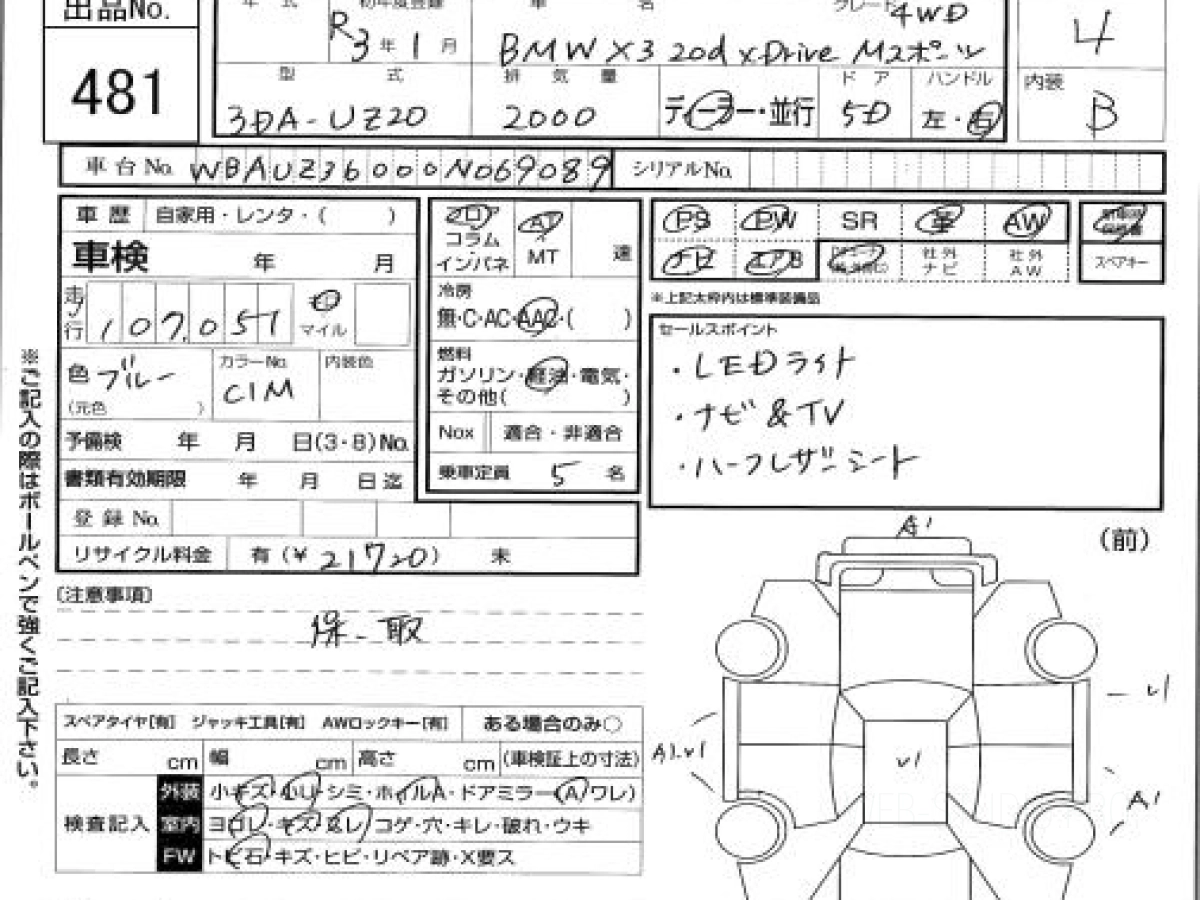 出品No.
481
年式 初年度登録 車名 グレード
R3年1月 BMW X3 20d xDrive Mスポーツ 4WD
4
型式 排気量 ドア ハンドル
3DA-UZ20 2000 ディーラー・並行 5D 左・右
内装
B
車台No. WBAUZ36000N069089 シリアルNo.
車歴 自家用・レンタ・( )
車検 年 月
走行 107,051 マイル
色 ブルー カラーNo. C1M 内装色
(元色 )
予備検 年 月 日(3・8)No.
書類有効期限 年 月 日迄
登録No.
リサイクル料金 有(¥21720) 未
フロア AT
コラム
インパネ MT 速
冷房
無・C・AC・AAC・( )
燃料
ガソリン・軽油・電気・
その他( )
Nox 適合・非適合
乗車定員 5 名
PS PW SR 革 AW
ナビ エアB 社外ナビ 社外AW
スペアキー
※上記太枠内は標準装備品
セールスポイント
・LEDライト
・ナビ&TV
・ハーフレザーシート
※ご記入の際はボールペンで強くご記入下さい。
(注意事項)
保、取
スペアタイヤ[有] ジャッキ工具[有] AWロックキー[有] ある場合のみ○
長さ cm 幅 cm 高さ cm (車検証上の寸法)
検査記入
外装 小キズ・小U・シミ・ホイルA・ドアミラー(A/ワレ)
室内 ヨゴレ・キズ・スレ・コゲ・穴・キレ・破れ・ウキ
FW トビ石・キズ・ヒビ・リペア跡・X要ス
A1
(前)
U1
A1.U1
U1
A1